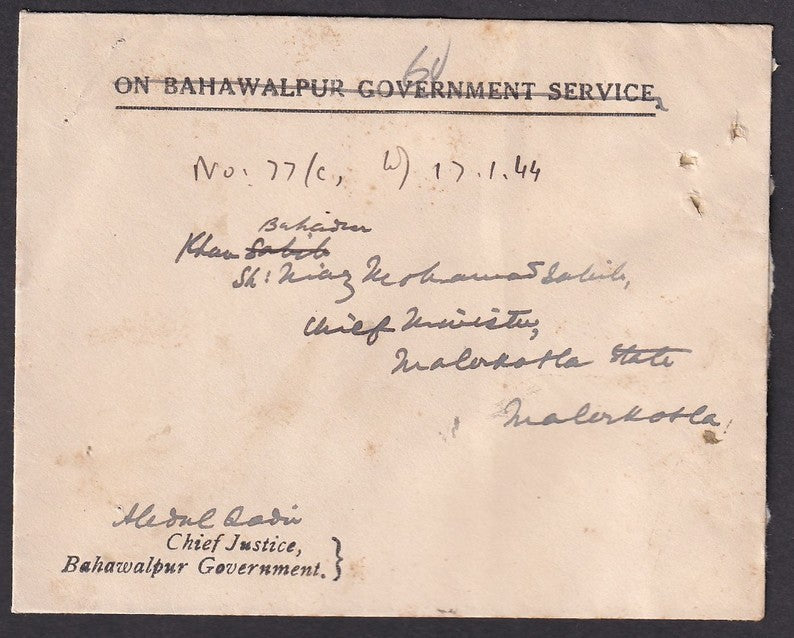 ON BAHAWALPUR GOVERNMENT SERVICE
No. 77/c, 17.1.44
Bahadur
Khan Sahib
Sh: Niaz Mohamad Sahib,
Chief Minister,
Malerkotla State
Malerkotla
Abdul Qadir
Chief Justice,
Bahawalpur Government.